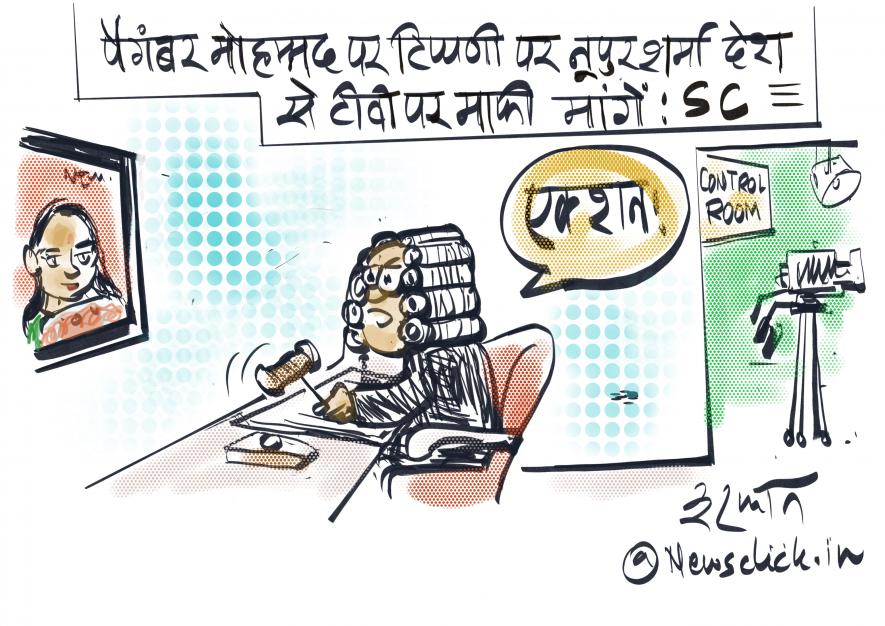 पैगंबर मोहम्मद पर टिप्पणी पर नूपुर शर्मा देश
से टीवी पर माफी मांगें : SC
एक शन
CONTROL
ROOM
इरफान
@Newsclick.in